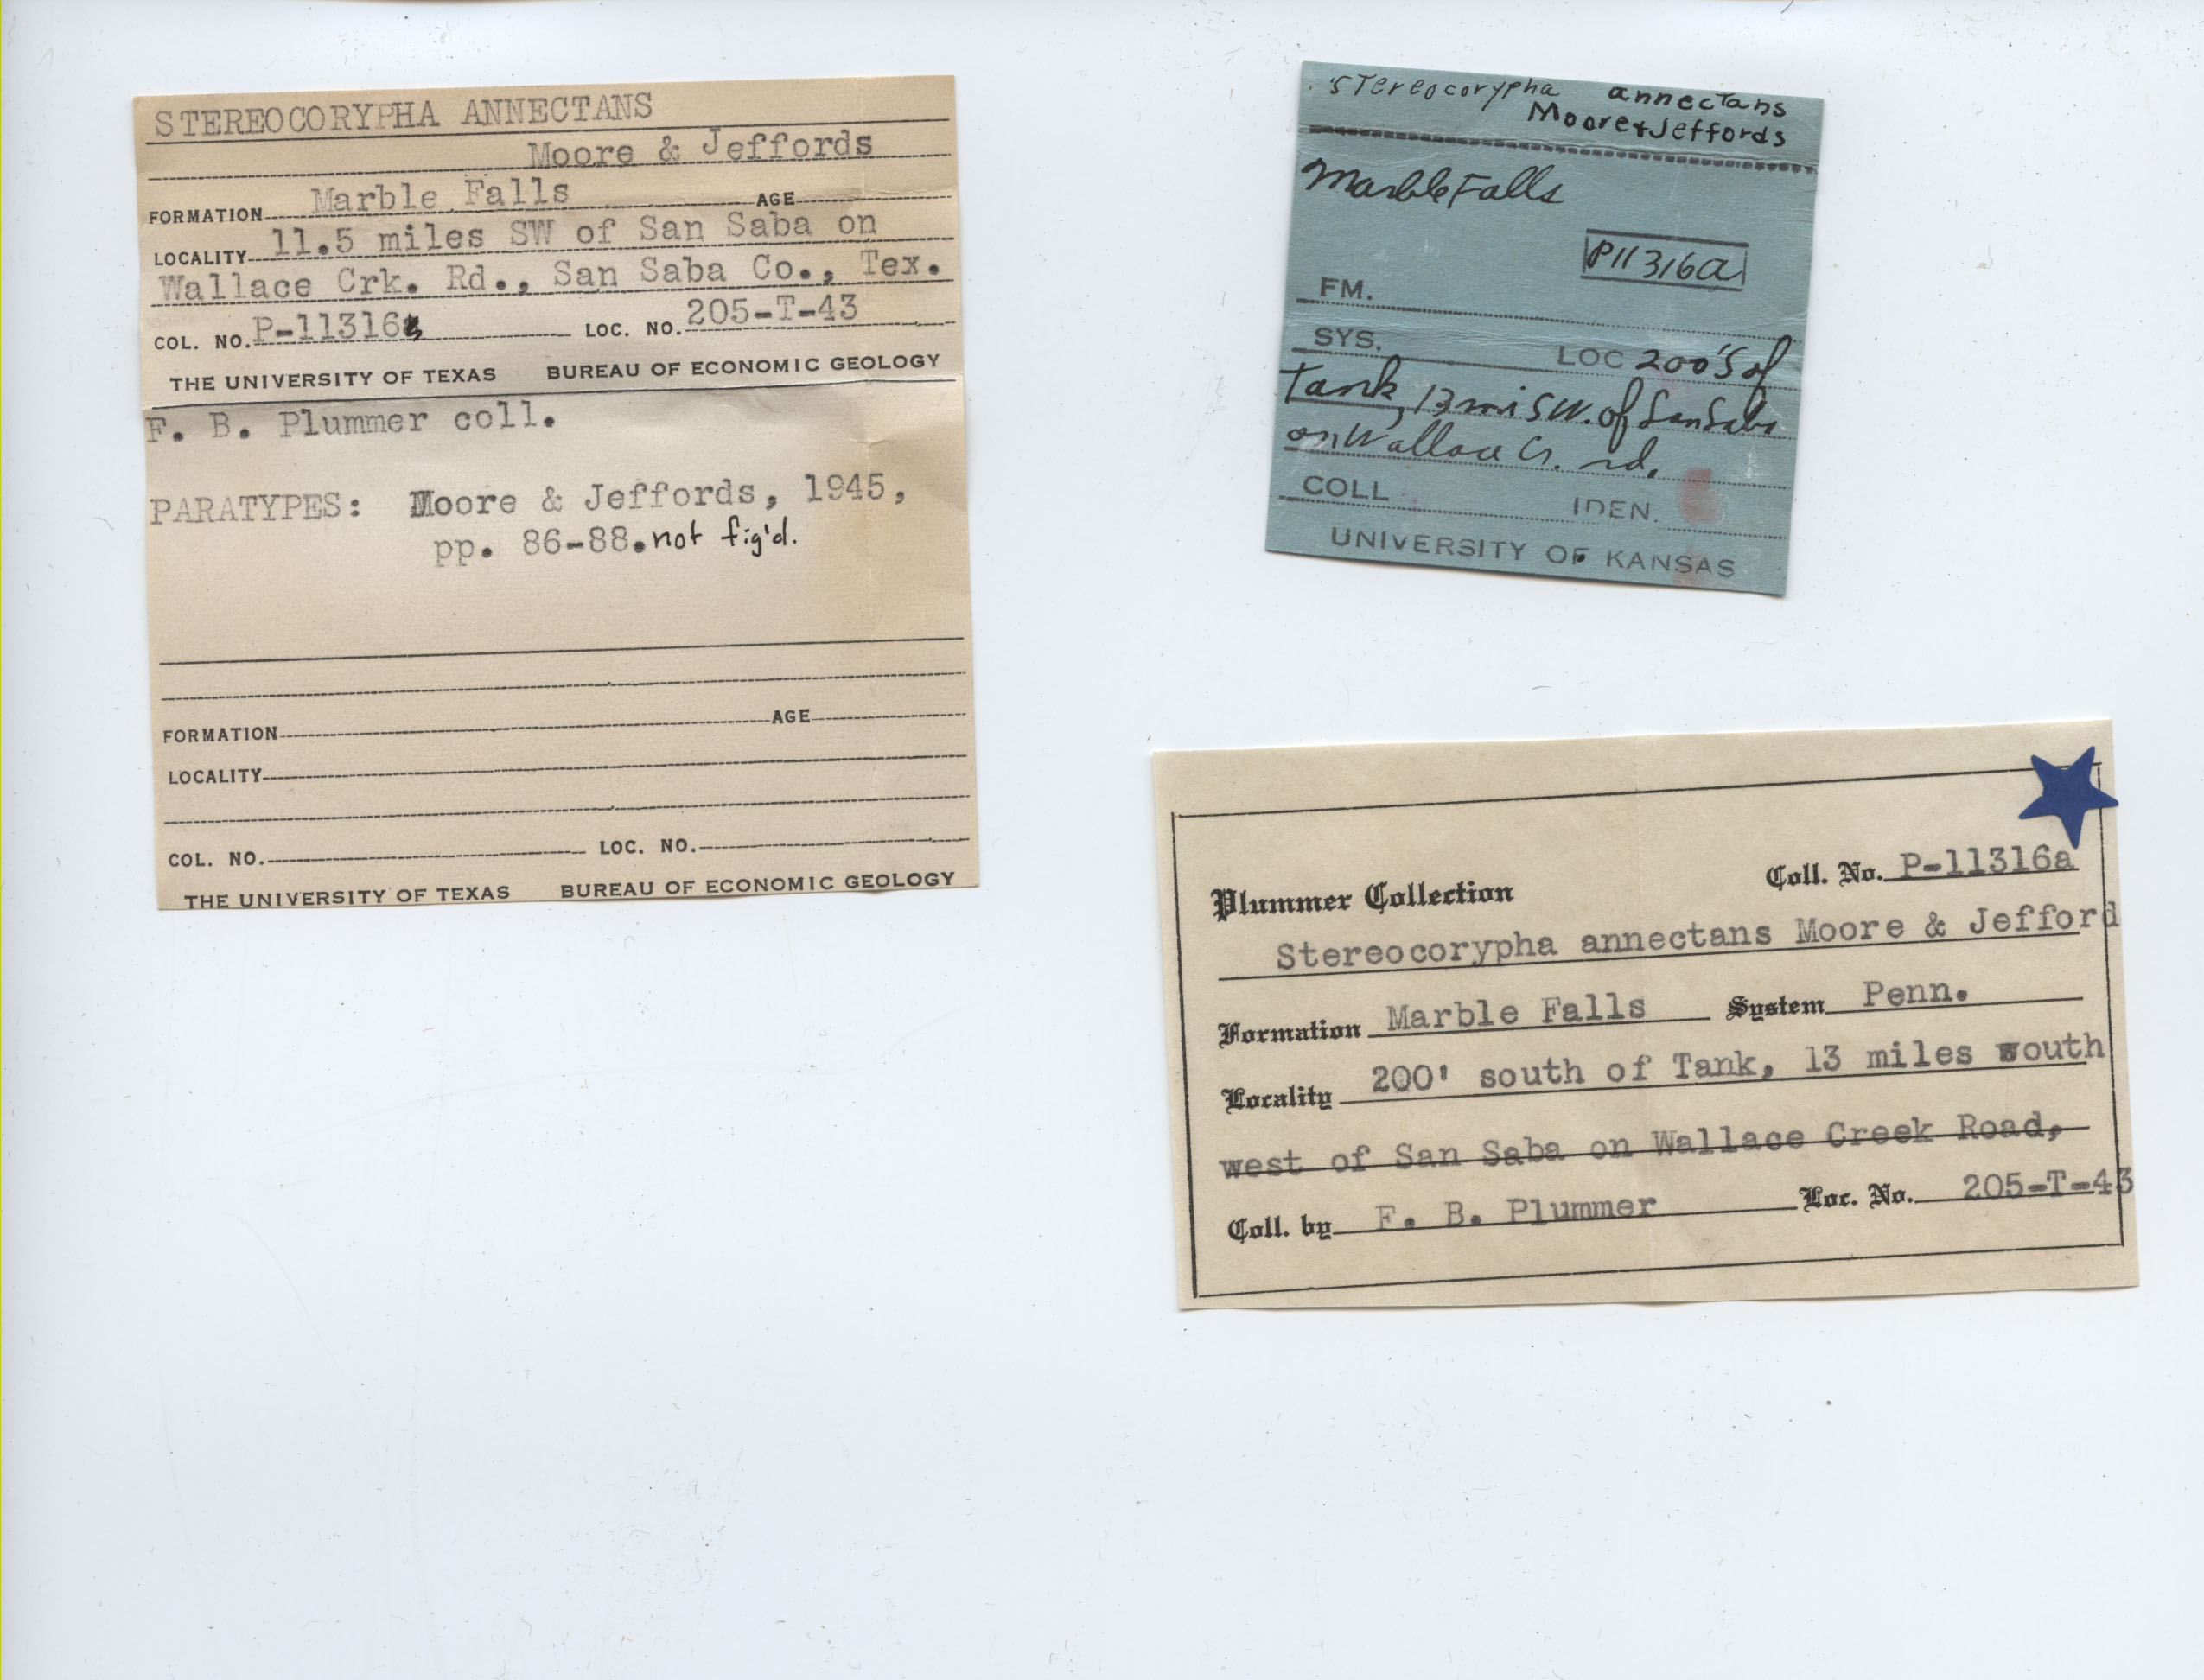 STEREOCORYPHA ANNECTANS
Moore & Jeffords
FORMATION Marble Falls AGE
LOCALITY 11.5 miles SW of San Saba on
Wallace Crk. Rd., San Saba Co., Tex.
COL. NO. P-11316 LOC. NO. 205-T-43
THE UNIVERSITY OF TEXAS BUREAU OF ECONOMIC GEOLOGY
F. B. Plummer coll.
PARATYPES: Moore & Jeffords, 1945,
pp. 86-88. not fig'd.
FORMATION AGE
LOCALITY
COL. NO. LOC. NO.
THE UNIVERSITY OF TEXAS BUREAU OF ECONOMIC GEOLOGY
Stereocorypha annectans
Moore & Jeffords
Marble Falls
P11316a
FM.
SYS. LOC 200'S of
Tank, 13 mi SW. of San Saba
on Wallace Cr. rd.
COLL IDEN.
UNIVERSITY OF KANSAS
Plummer Collection Coll. No. P-11316a
Stereocorypha annectans Moore & Jefford
Formation Marble Falls System Penn.
Locality 200' south of Tank, 13 miles wouth
west of San Saba on Wallace Creek Road,
Coll. by F. B. Plummer Loc. No. 205-T-43